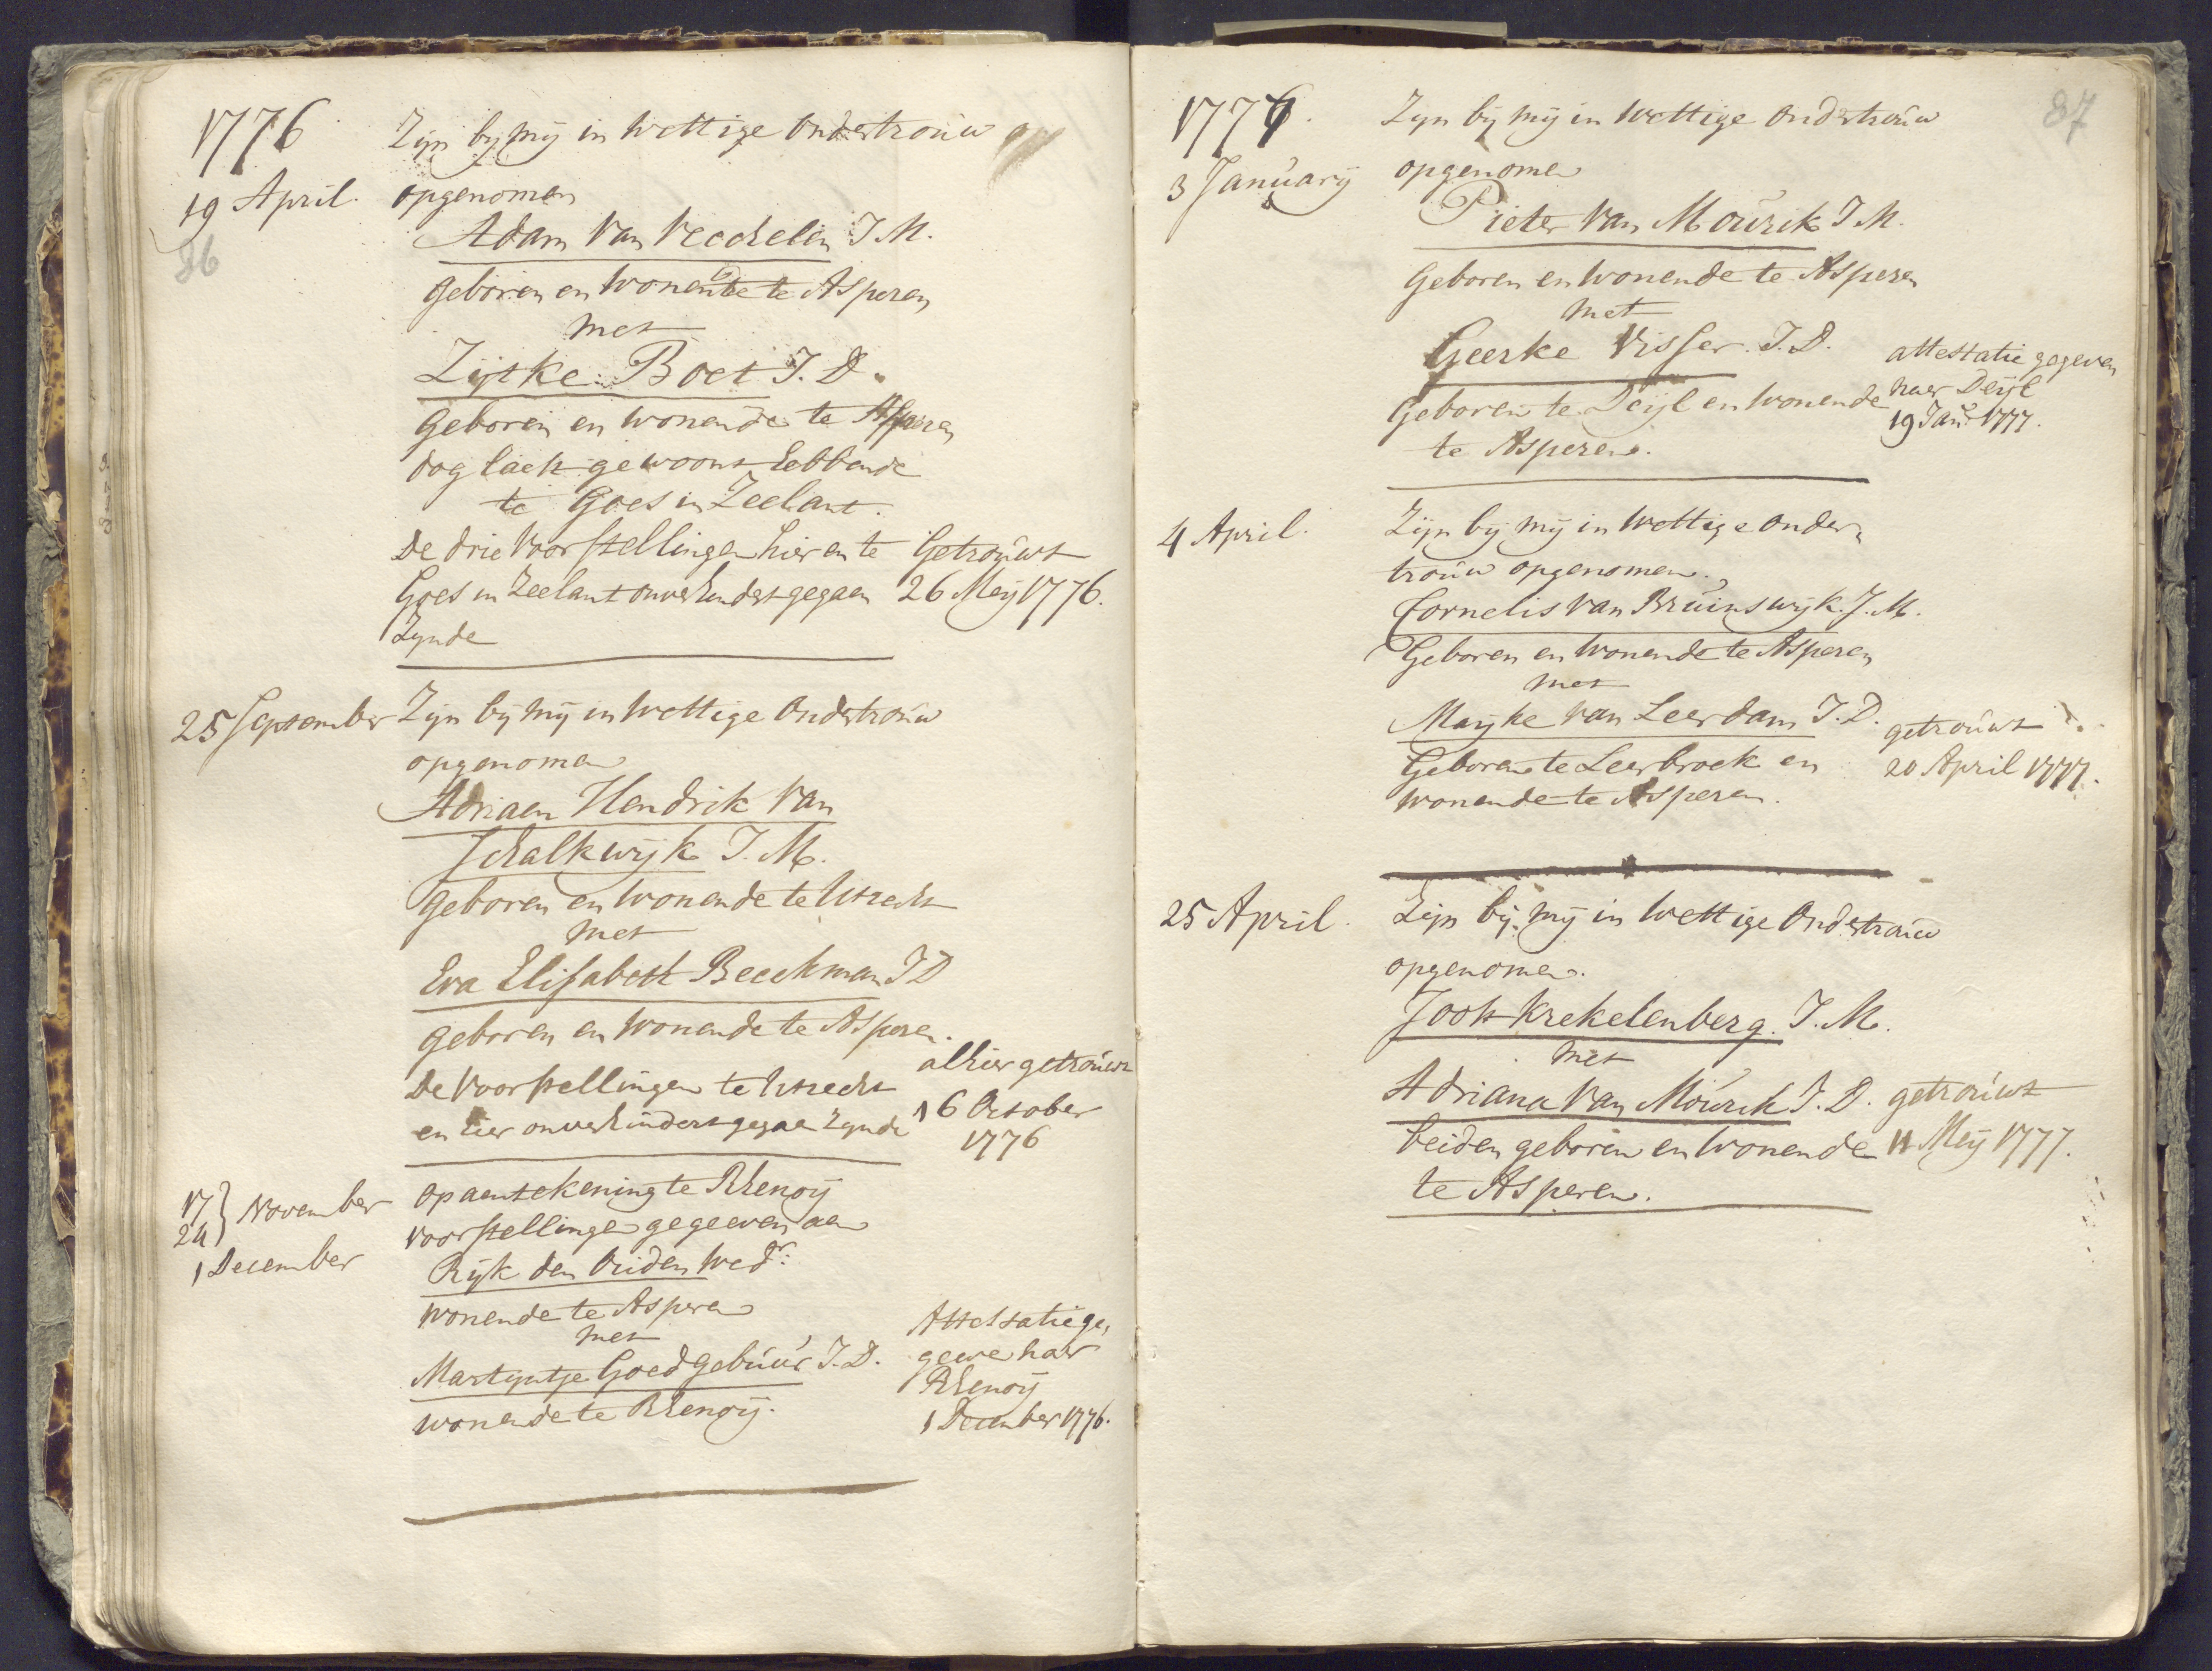 1776
Zijn bij mij in Wettige Ondertrouw
19 April. opgenomen
86
Adam Van Veeckelen J. M.
geboren en Wonende te Asperen
met
Zijtke Boet J. D.
geboren en wonende te Asperen
dog laest gewoont hebbende
te Goes in Zeelant.
De drie Voorstellingen hier en te
Goes in Zeelant onverhindert gegaen
Zynde
Getrouwt
26 Meij 1776.
25 September Zijn bij mij in Wettige Ondertrouw
opgenomen
Adriaen Hendrik Van
Schalkwijk J. M.
geboren en Wonende te Utrecht
met
Eva Elisabeth Beeckman J D
geboren en Wonende te Asperen.
De Voorstellingen te Utrecht
en hier onverhindert gegaen Zynde
alhier getrouwt
16 October
1776
17
24 } November
1 December
Op aentekening te Rhenoij
voorstellingen gegeeven aen
Rijk den Ouden Wedr:
wonende te Asperen
met
Martyntje Goedgebuur J. D.
wonende te Rhenoij.
Attestatie ge,
geven naer
Rhenoij
1 December 1776.
87
1777.
Zyn bij mij in Wettige Ondertrouw
3 January opgenomen
Pieter Van Mourik J M.
Geboren en Wonende te Asperen
met
Geerke Visser. J. D.
Geboren te Deijl en Wonende
te Asperen.
attestatie gegeven
naer Deijl
19 Janr. 1777.
4 April.
Zijn bij mij in Wettige Onder,
trouw opgenomen.
Cornelis Van Bruinswijk. J. M.
Geboren en Wonende te Asperen
met
Maijke Van Leerdam J. D.
Geboren te Leerbroek en
wonende te Asperen.
getrouwt
20 April 1777.
25 April.
Zijn bij mij in Wettige Ondertrouw
opgenomen.
Joost Krekelenberg. J. M.
met
Adriana Van Mourik J. D.
beiden geboren en Wonende
te Asperen.
getrouwt
11 Meij 1777.